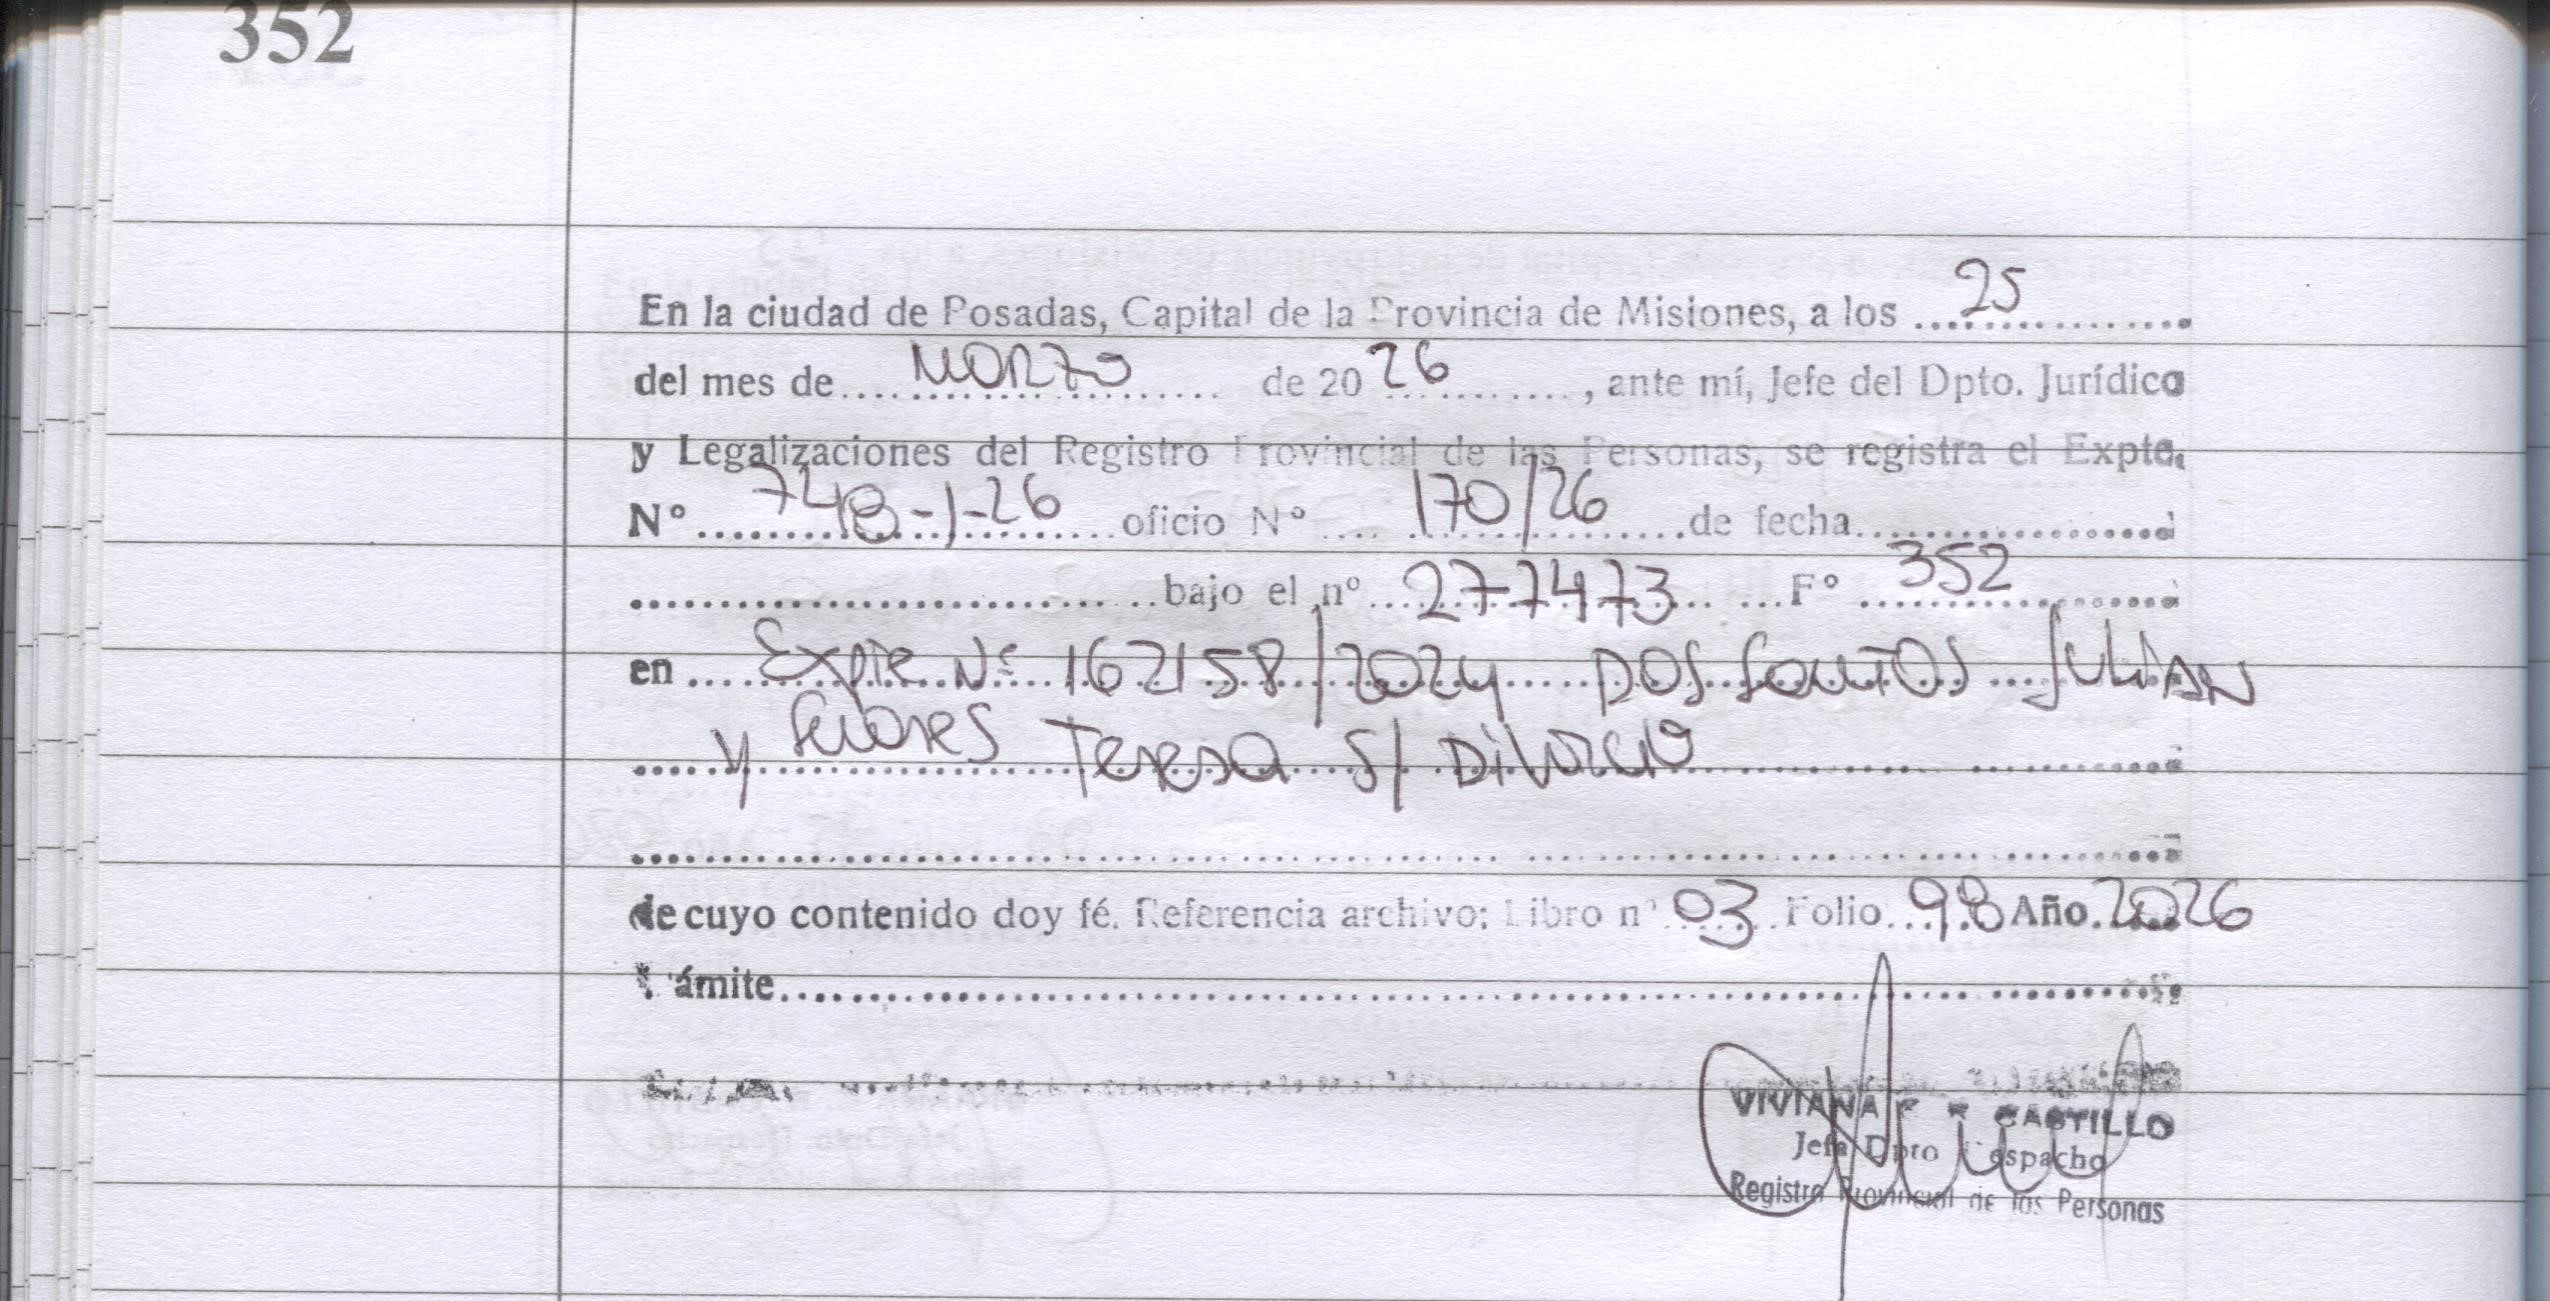 352
En la ciudad de Posadas, Capital de la Provincia de Misiones, a los 25
del mes de MARZO de 2026, ante mí, Jefe del Dpto. Jurídico
y Legalizaciones del Registro Provincial de las Personas, se registra el Expte.
N° 7248-J-26 oficio N° 170/26 de fecha
bajo el nº 277473 F° 352
en Expte Nº 162158/2024 DOS SANTOS JULIAN
y Teresa S/ Divorcio
de cuyo contenido doy fé. Referencia archivo: Libro nº 03 Folio 98 Año 2026
ámite
VIVIANA CASTILLO
Jefa Dpto Despacho
Registro Provincial de las Personas